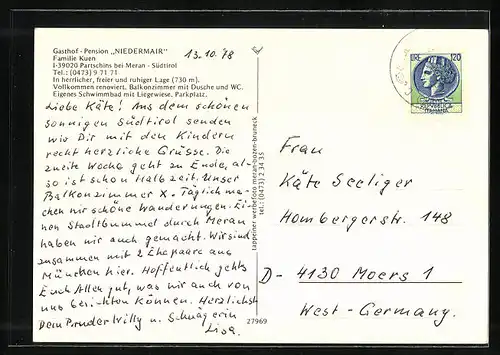 Gasthof - Pension „NIEDERMAIR"
Familie Kuen
I-39020 Partschins bei Meran - Südtirol
Tel.: (0473) 9 71 71
In herrlicher, freier und ruhiger Lage (730 m).
Vollkommen renoviert. Balkonzimmer mit Dusche und WC.
Eigenes Schwimmbad mit Liegewiese. Parkplatz.
13.10.78
Liebe Käte! Aus dem schönen
sonnigen Südtirol senden
wir Dir mit den Kindern
recht herzliche Grüsse. Die
zweite Woche geht zu Ende, al-
so ist schon Halbzeit. Unser
Balkonzimmer X. Täglich ma-
chen wir schöne Wanderungen. Ei-
nen Stadtbummel durch Meran
haben wir auch gemacht. Wir sind
zusammen mit 2 Ehepaare aus
München hier. Hoffentlich gehts
Euch Allen gut, was wir auch von
uns berichten können. Herzlichst
Dein Bruder Willy u. Schwägerin
Lisa.
lappeiner werbefoto meran-bozen-bruneck
tel.: (0473) 2 34 35
27969
LIRE 120
Frau
Käte Seeliger
Hombergerstr. 148
D- 4130 Moers 1
West-Germany.